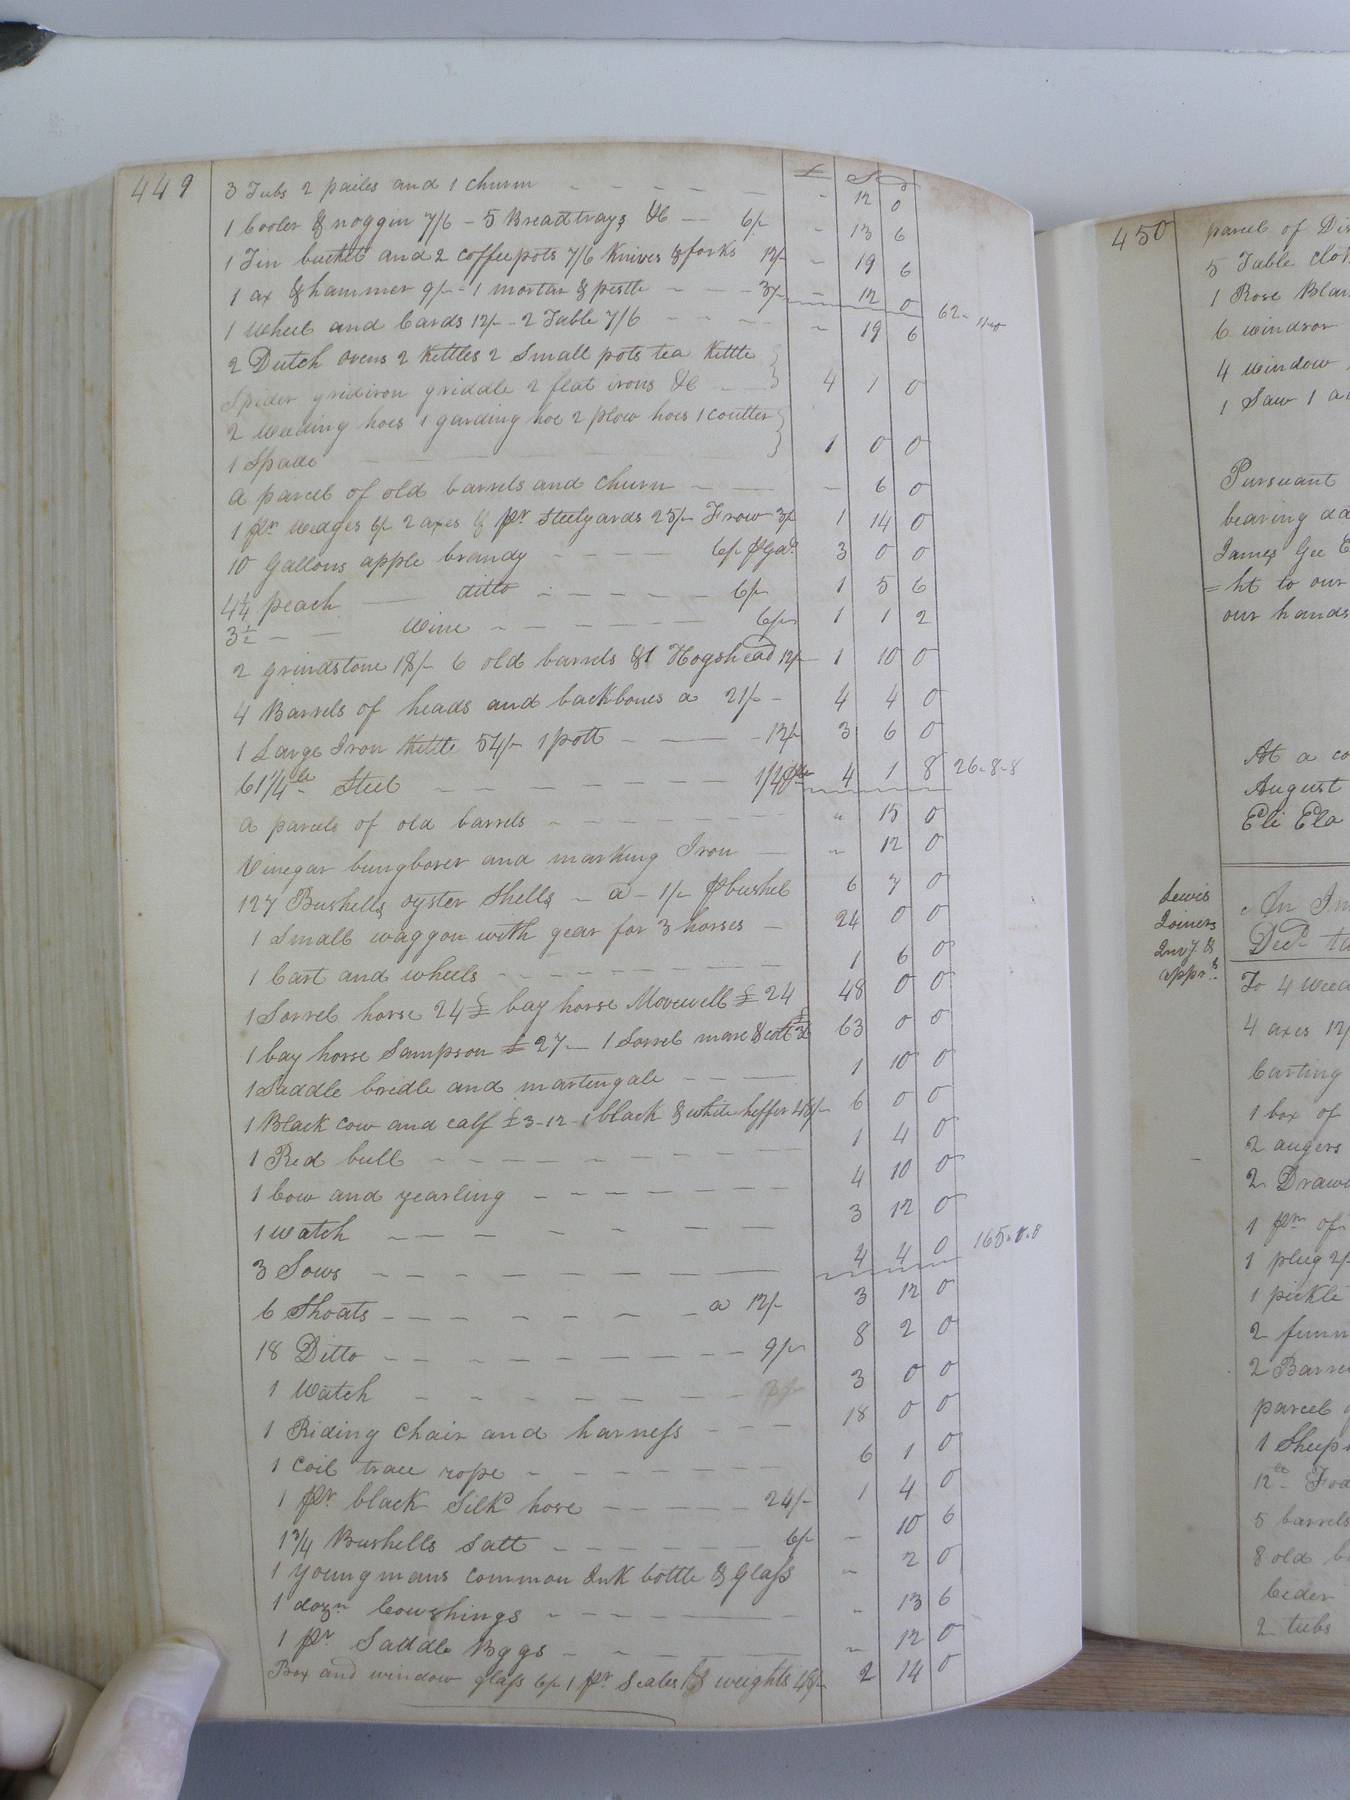 449
£ S D
3 Tubs 2 pailes and 1 churn - 12 0
1 Cooler & noggin 7/6 - 5 Bread trays &c 6/- - 13 6
1 Tin bucket and 2 coffeepots 7/6 Knives & forks 12/- - 19 6
1 ax & hammer 9/- - 1 mortar & pestle 3/- - 12 0 62-
1 Wheel and Cards 12/- - 2 Table 7/6 - 19 6
2 Dutch ovens 2 Kettles 2 Small pots tea Kettle
Spider gridiron griddle 2 flat irons &c 4 1 0
2 Weeding hoes 1 garding hoe 2 plow hoes 1 Coulter
1 Spade 1 0 0
a parcel of old barrels and Churn - 6 0
1 pr wedges 6/- 2 axes & pr steelyards 25/- Frow 3/- 1 14 0
10 Gallons apple brandy 6/- pr Gao 3 0 0
4¼ peach ditto 6/- 1 5 6
3½ Wine 6/- 1 1 2
2 grindstone 18/- 6 old barrels & 1 Hogshead 12/- 1 10 0
4 Barrels of heads and backbones a 21/- 4 4 0
1 Large Iron Kettle 54/- 1 pott 12/- 3 6 0
61 1/4 lb Steel 1/4 pr lb 4 1 8 26-8-8
a parcels of old barrels " 15 0
Vinegar bungborer and marking Iron - 12 0
127 Bushells oyster Shells - a - 1/- pr bushel 6 7 0
1 Small waggon with gear for 3 horses 24 0 0
1 Cart and wheels 1 6 0
1 Sorrel horse 24 £ bay horse Movewell £ 24 48 0 0
1 bay horse Sampson £ 27 - 1 Sorrel mare & colt £36 63 0 0
1 Saddle bridle and martengale 1 10 0
1 Black cow and calf £3-12 - 1 black & white heffer 48/- 6 0 0
1 Red bull 1 4 0
1 Cow and yearling 4 10 0
1 Watch 3 12 0
3 Sows 4 4 0 165.0.0
6 Shoats a 12/- 3 12 0
18 Ditto 9/- 8 2 0
1 Watch 3 0 0
1 Riding Chair and harness 18 0 0
1 Coil trace rope 6 1 0
1 pr black Silk hose 24/- 1 4 0
1 3/4 Bushells Salt 6/- - 10 6
1 Youngmans common Ink bottle & Glass " 2 0
1 dozn Cowshings " 13 6
1 pr Saddle Baggs " 12 0
Box and window glass 6/- 1 pr Scales & weights 48/- 2 14 0
450
parcel of
5 Table
1 Rose
6 windsor
4 window
1 Saw 1
Pursuant
bearing
James Gee
=ht to our
our hands
At a
August
Eli Ela
Lewis
Joiners
Invy. &
apprs
An
Decd
To 4
4 axes 12/
Carting
1 box of
2 augers
2
1 pr of
1 plug 2/
1 pickle
2
2
parcel
1 Sheep
12
5 barrels
8 old
Ceder
2 tubs